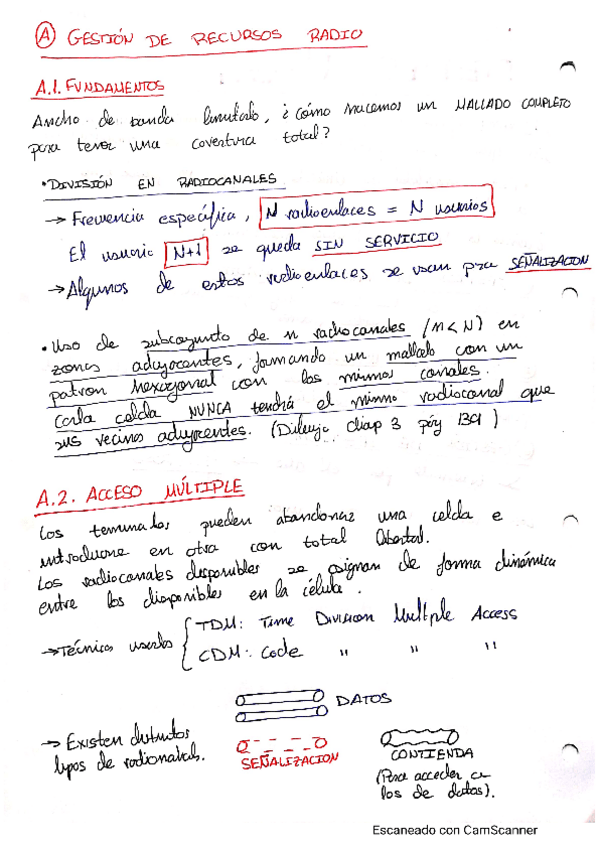 A GESTIÓN DE RECURSOS RADIO
A.1. FUNDAMENTOS
Ancho de banda limitado, ¿cómo hacemos un MALLADO COMPLETO
para tener una covertura total?
• DIVISIÓN EN RADIOCANALES
→ Frecuencia específica, N radioenlaces = N usuarios
El usuario N+1 se queda SIN SERVICIO
→ Algunos de estos radioenlaces se usan para SEÑALIZACION
• Uso de subconjunto de n radiocanales (n < N) en
zonas adyacentes, formando un mallado con un
patron hexagonal con los mismos canales.
Cada celda NUNCA tendrá el mismo radiocanal que
sus vecinos adyacentes. (Dibujo diap 3 pág 139)
A.2. ACCESO MÚLTIPLE
Los terminales pueden abandonar una celda e
introducirse en otra con total libertad.
Los radiocanales disponibles se asignan de forma dinámica
entre los disponibles en la célula.
→ Técnicas usadas { TDM: Time Division Multiple Access
CDM: Code " " "
DATOS
→ Existen distintos
tipos de radiocanales.
SEÑALIZACION
CONTIENDA
(Para acceder a
los de datos).
Escaneado con CamScanner